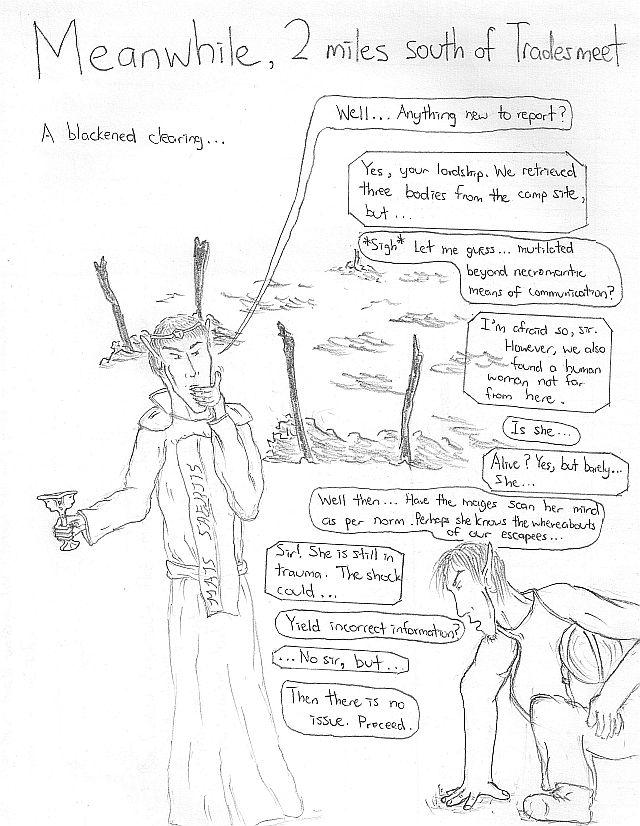 Meanwhile, 2 miles south of Tradesmeet
A blackened clearing...
Well... Anything new to report?
Yes, your lordship. We retrieved
three bodies from the camp site,
but...
*Sigh* Let me guess... mutilated
beyond necromantic
means of communication?
I'm afraid so, sir.
However, we also
found a human
woman not far
from here.
Is she...
Alive? Yes, but barely...
She...
Well then... Have the mages scan her mind
as per norm. Perhaps she knows the whereabouts
of our escapees...
Sir! She is still in
trauma. The shock
could...
Yield incorrect information?
...No sir, but...
Then there is no
issue. Proceed.